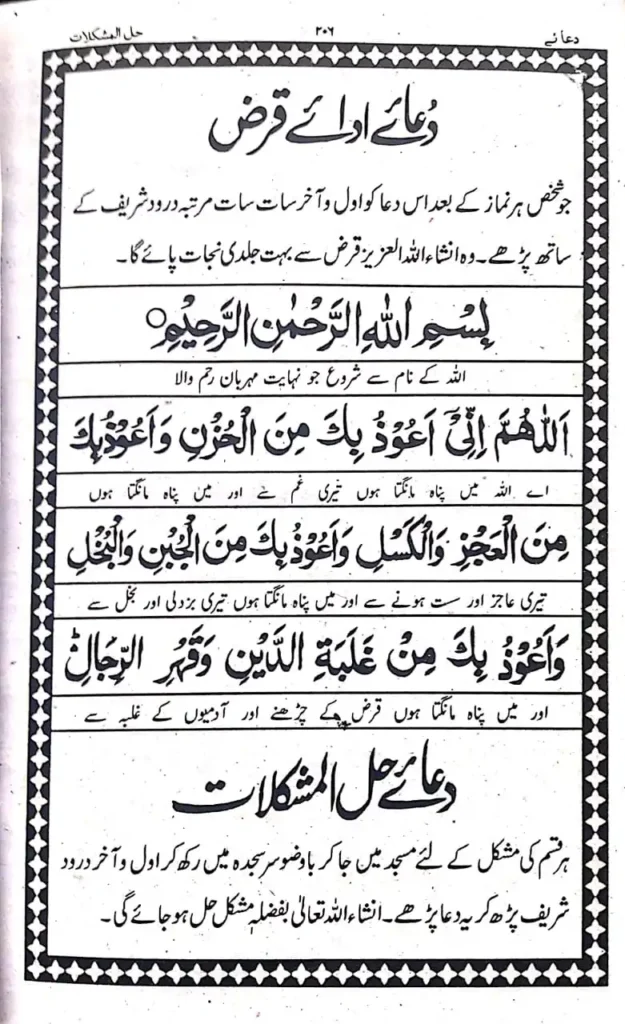 دعائے
۲۰۶
حل المشکلات
دُعائے ادائے قرض
جو شخص ہر نماز کے بعد اس دعا کو اول و آخر سات سات مرتبہ درود شریف کے
ساتھ پڑھے۔ وہ انشاء اللہ العزیز قرض سے بہت جلدی نجات پائے گا۔
بِسْمِ اللّٰهِ الرَّحْمٰنِ الرَّحِيْمِ○
اللہ کے نام سے شروع جو نہایت مہربان رحم والا
اَللّٰهُمَّ اِنِّيْٓ اَعُوْذُ بِكَ مِنَ الْحُزْنِ وَاَعُوْذُبِكَ
اے اللہ میں پناہ مانگتا ہوں تیری غم سے اور میں پناہ مانگتا ہوں
مِنَ الْعَجْزِ وَالْكَسْلِ وَاَعُوْذُ بِكَ مِنَ الْجُبْنِ وَالْبُخْلِ
تیری عاجز اور ست ہونے سے اور میں پناہ مانگتا ہوں تیری بزدلی اور بخل سے
وَاَعُوْذُ بِكَ مِنْ غَلَبَةِ الدَّيْنِ وَقَهْرِ الرِّجَالِؕ
اور میں پناہ مانگتا ہوں قرض کے چڑھنے اور آدمیوں کے غلبہ سے
دعائے حل المشکلات
ہر قسم کی مشکل کے لئے مسجد میں جا کر باوضو سر سجدہ میں رکھ کر اول و آخر درود
شریف پڑھ کر یہ دعا پڑھے۔ انشاء اللہ تعالیٰ بفضلہٖ مشکل حل ہو جائے گی۔